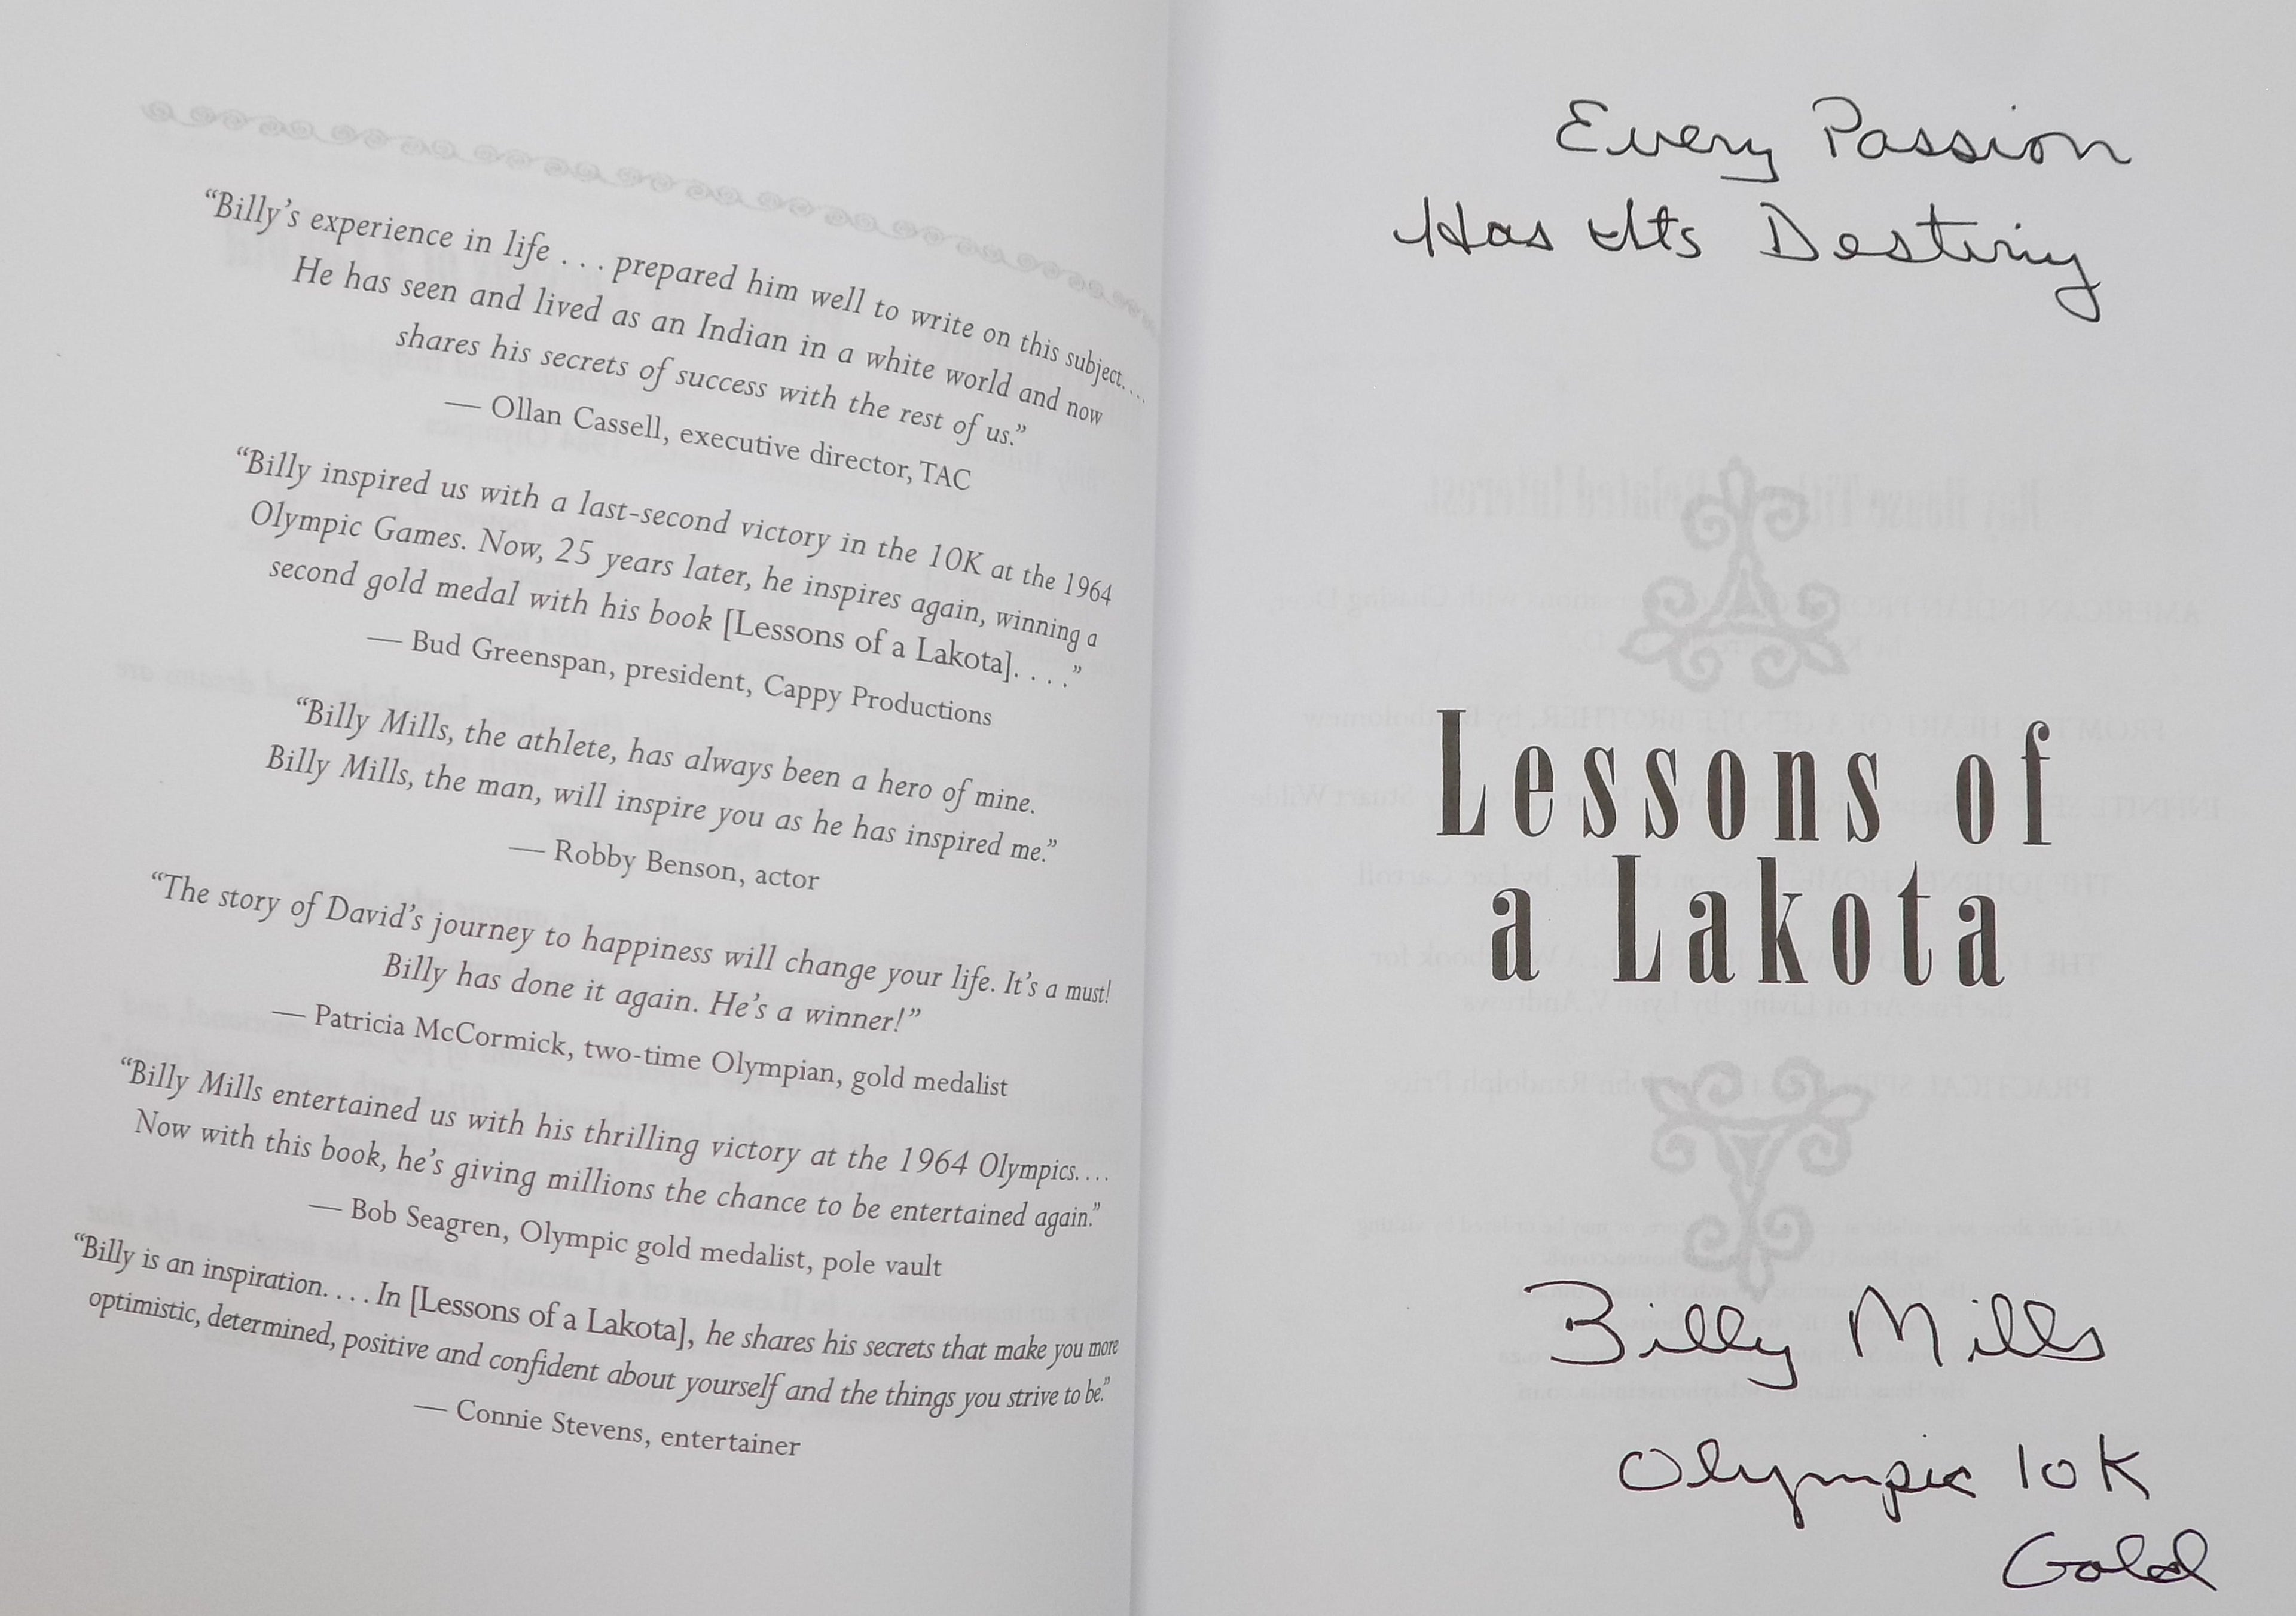 “Billy’s experience in life . . . prepared him well to write on this subject. . . .
He has seen and lived as an Indian in a white world and now
shares his secrets of success with the rest of us.”
— Ollan Cassell, executive director, TAC
“Billy inspired us with a last-second victory in the 10K at the 1964
Olympic Games. Now, 25 years later, he inspires again, winning a
second gold medal with his book [Lessons of a Lakota]. . . .”
— Bud Greenspan, president, Cappy Productions
“Billy Mills, the athlete, has always been a hero of mine.
Billy Mills, the man, will inspire you as he has inspired me.”
— Robby Benson, actor
“The story of David’s journey to happiness will change your life. It’s a must!
Billy has done it again. He’s a winner!”
— Patricia McCormick, two-time Olympian, gold medalist
“Billy Mills entertained us with his thrilling victory at the 1964 Olympics. . . .
Now with this book, he’s giving millions the chance to be entertained again.”
— Bob Seagren, Olympic gold medalist, pole vault
“Billy is an inspiration. . . . In [Lessons of a Lakota], he shares his secrets that make you more
optimistic, determined, positive and confident about yourself and the things you strive to be.”
— Connie Stevens, entertainer
Every Passion
Has Its Destiny
Lessons of
a Lakota
Billy Mills
Olympic 10K
Gold